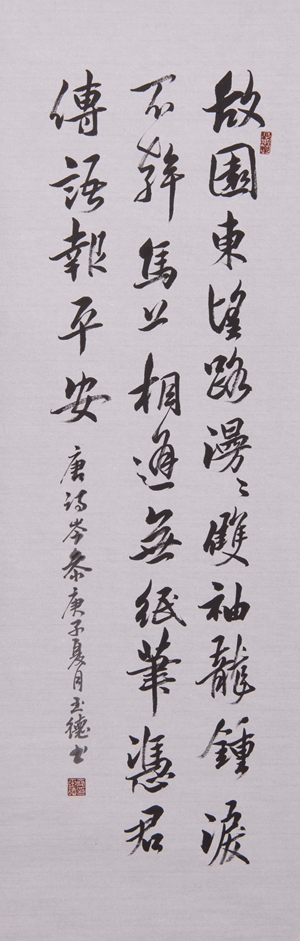 故園東望路漫〻雙袖龍鍾淚
不乾馬上相逢無紙筆憑君
傳語報平安
唐詩岑參庚子夏月玉德书